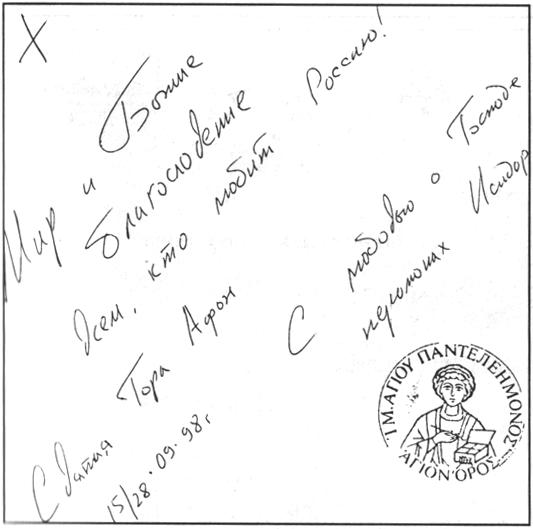 Х
Мир и Божие
благословение
всем, кто любит Россию!
С любовью о Господе
иеромонах Исидор
Святая Гора Афон
15/28.09.98г
Ι.Μ.ΑΓΙΟΥ ΠΑΝΤΕΛΕΗΜΟΝΟΣ
ΑΓΙΟΝ ΟΡΟΣ